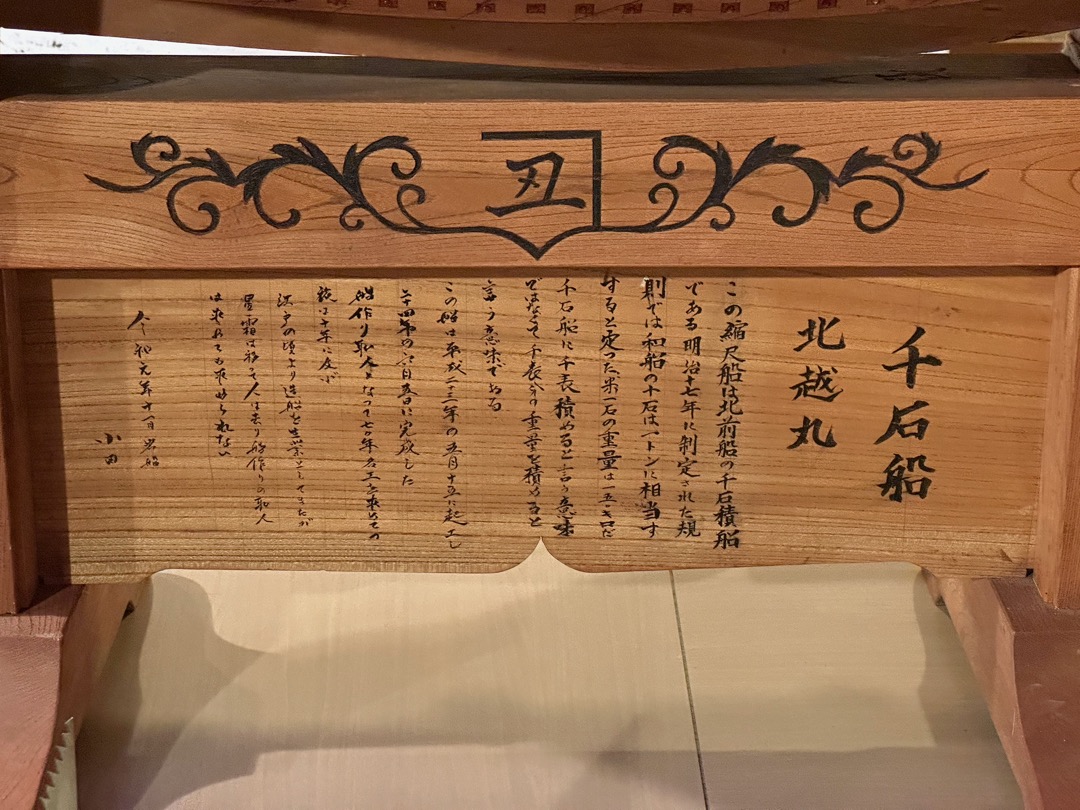 丑
千石船
北越丸
この縮尺船は北前船の千石積船
である明治十七年に制定された規
則では和船の十石は一トンに相当す
すると定った米一石の重量は一五〇キロだ
千石船に千表積めると言う意味
ではなくて千表分の重量を積めると
言う意味である
この船は平成二十三年の五月十五に起工し
二十四年の六月五日に完成した
船作り職人となって七〇年名工を求めての
旅は十年に及ぶ
江戸の頃より造船を生業としてきたが
星霜は移って人は去り船作りの職人
は求めても求められない
令和元年十一月 岩船
小田